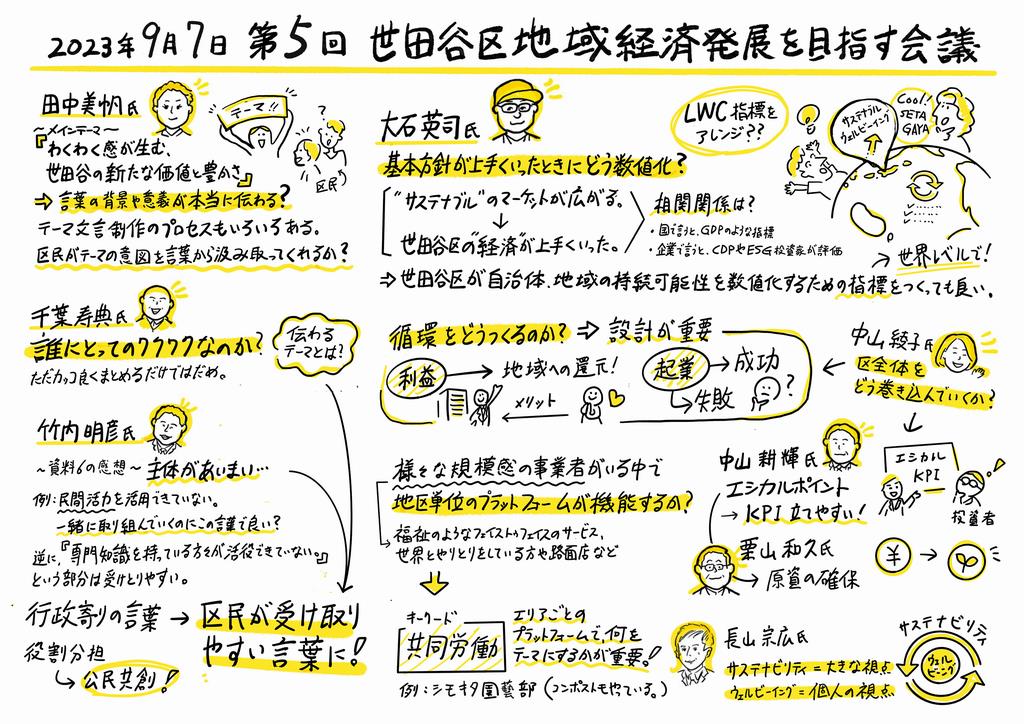 2023年9月7日 第5回 世田谷区地域経済発展を目指す会議
田中美帆氏
テーマ!!
?
区民
〜メインテーマ〜
『わくわく感が生む、
世田谷の新たな価値と豊かさ』
⇒ 言葉の背景や意義が本当に伝わる?
テーマ文言制作のプロセスもいろいろある。
区民がテーマの意図を言葉から汲み取ってくれるか?
千葉寿典氏
誰にとってのワクワクなのか?
ただカッコ良くまとめるだけではだめ。
伝わる
テーマとは?
竹内明彦氏
〜資料6の感想〜 主体があいまい…
例:民間活力を活用できていない。
一緒に取り組んでいくのにこの言葉で良い?
逆に、『専門知識を持っている方々が活役できていない。』
という部分は受けとりやすい。
行政寄りの言葉 → 区民が受け取り
やすい言葉に!
役割分担
→ 公民共創!
大石英司氏
基本方針が上手くいったときにどう数値化?
"サステナブル"のマーケットが広がる。
↓
世田谷区の"経済"が上手くいった。
相関関係は?
・国で言うと、GDPのような指標
・企業で言うと、CDPやESG投資家が評価
⇒ 世田谷区が自治体、地域の持続可能性を数値化するための指標をつくっても良い。
LWC指標を
アレンジ??
サステナブル
ウェルビーイング
Cool!
SETA
GAYA
→ 世界レベルで!
循環をどうつくるのか? ⇒ 設計が重要
利益 → 地域への還元!
メリット
起業 → 成功
→ 失敗
?
中山綾子氏
区全体を
どう巻き込んでいくか?
様々な規模感の事業者がいる中で
地区単位のプラットフォームが機能するか?
福祉のようなフェイストゥフェイスのサービス、
世界とやりとりをしている方や路面店など
キーワード
共同労働
エリアごとの
プラットフォームで、何を
テーマにするかが重要!
例:シモキタ園藝部(コンポストもやっている。)
中山耕輝氏
エシカルポイント
→ KPI立てやすい!
エシカル
KPI
投資者
栗山和久氏
→ 原資の確保
¥ →
長山宗広氏
サステナビリティ=大きな視点
ウェルビーイング=個人の視点
サステナビリティ
ウェル
ビーイング